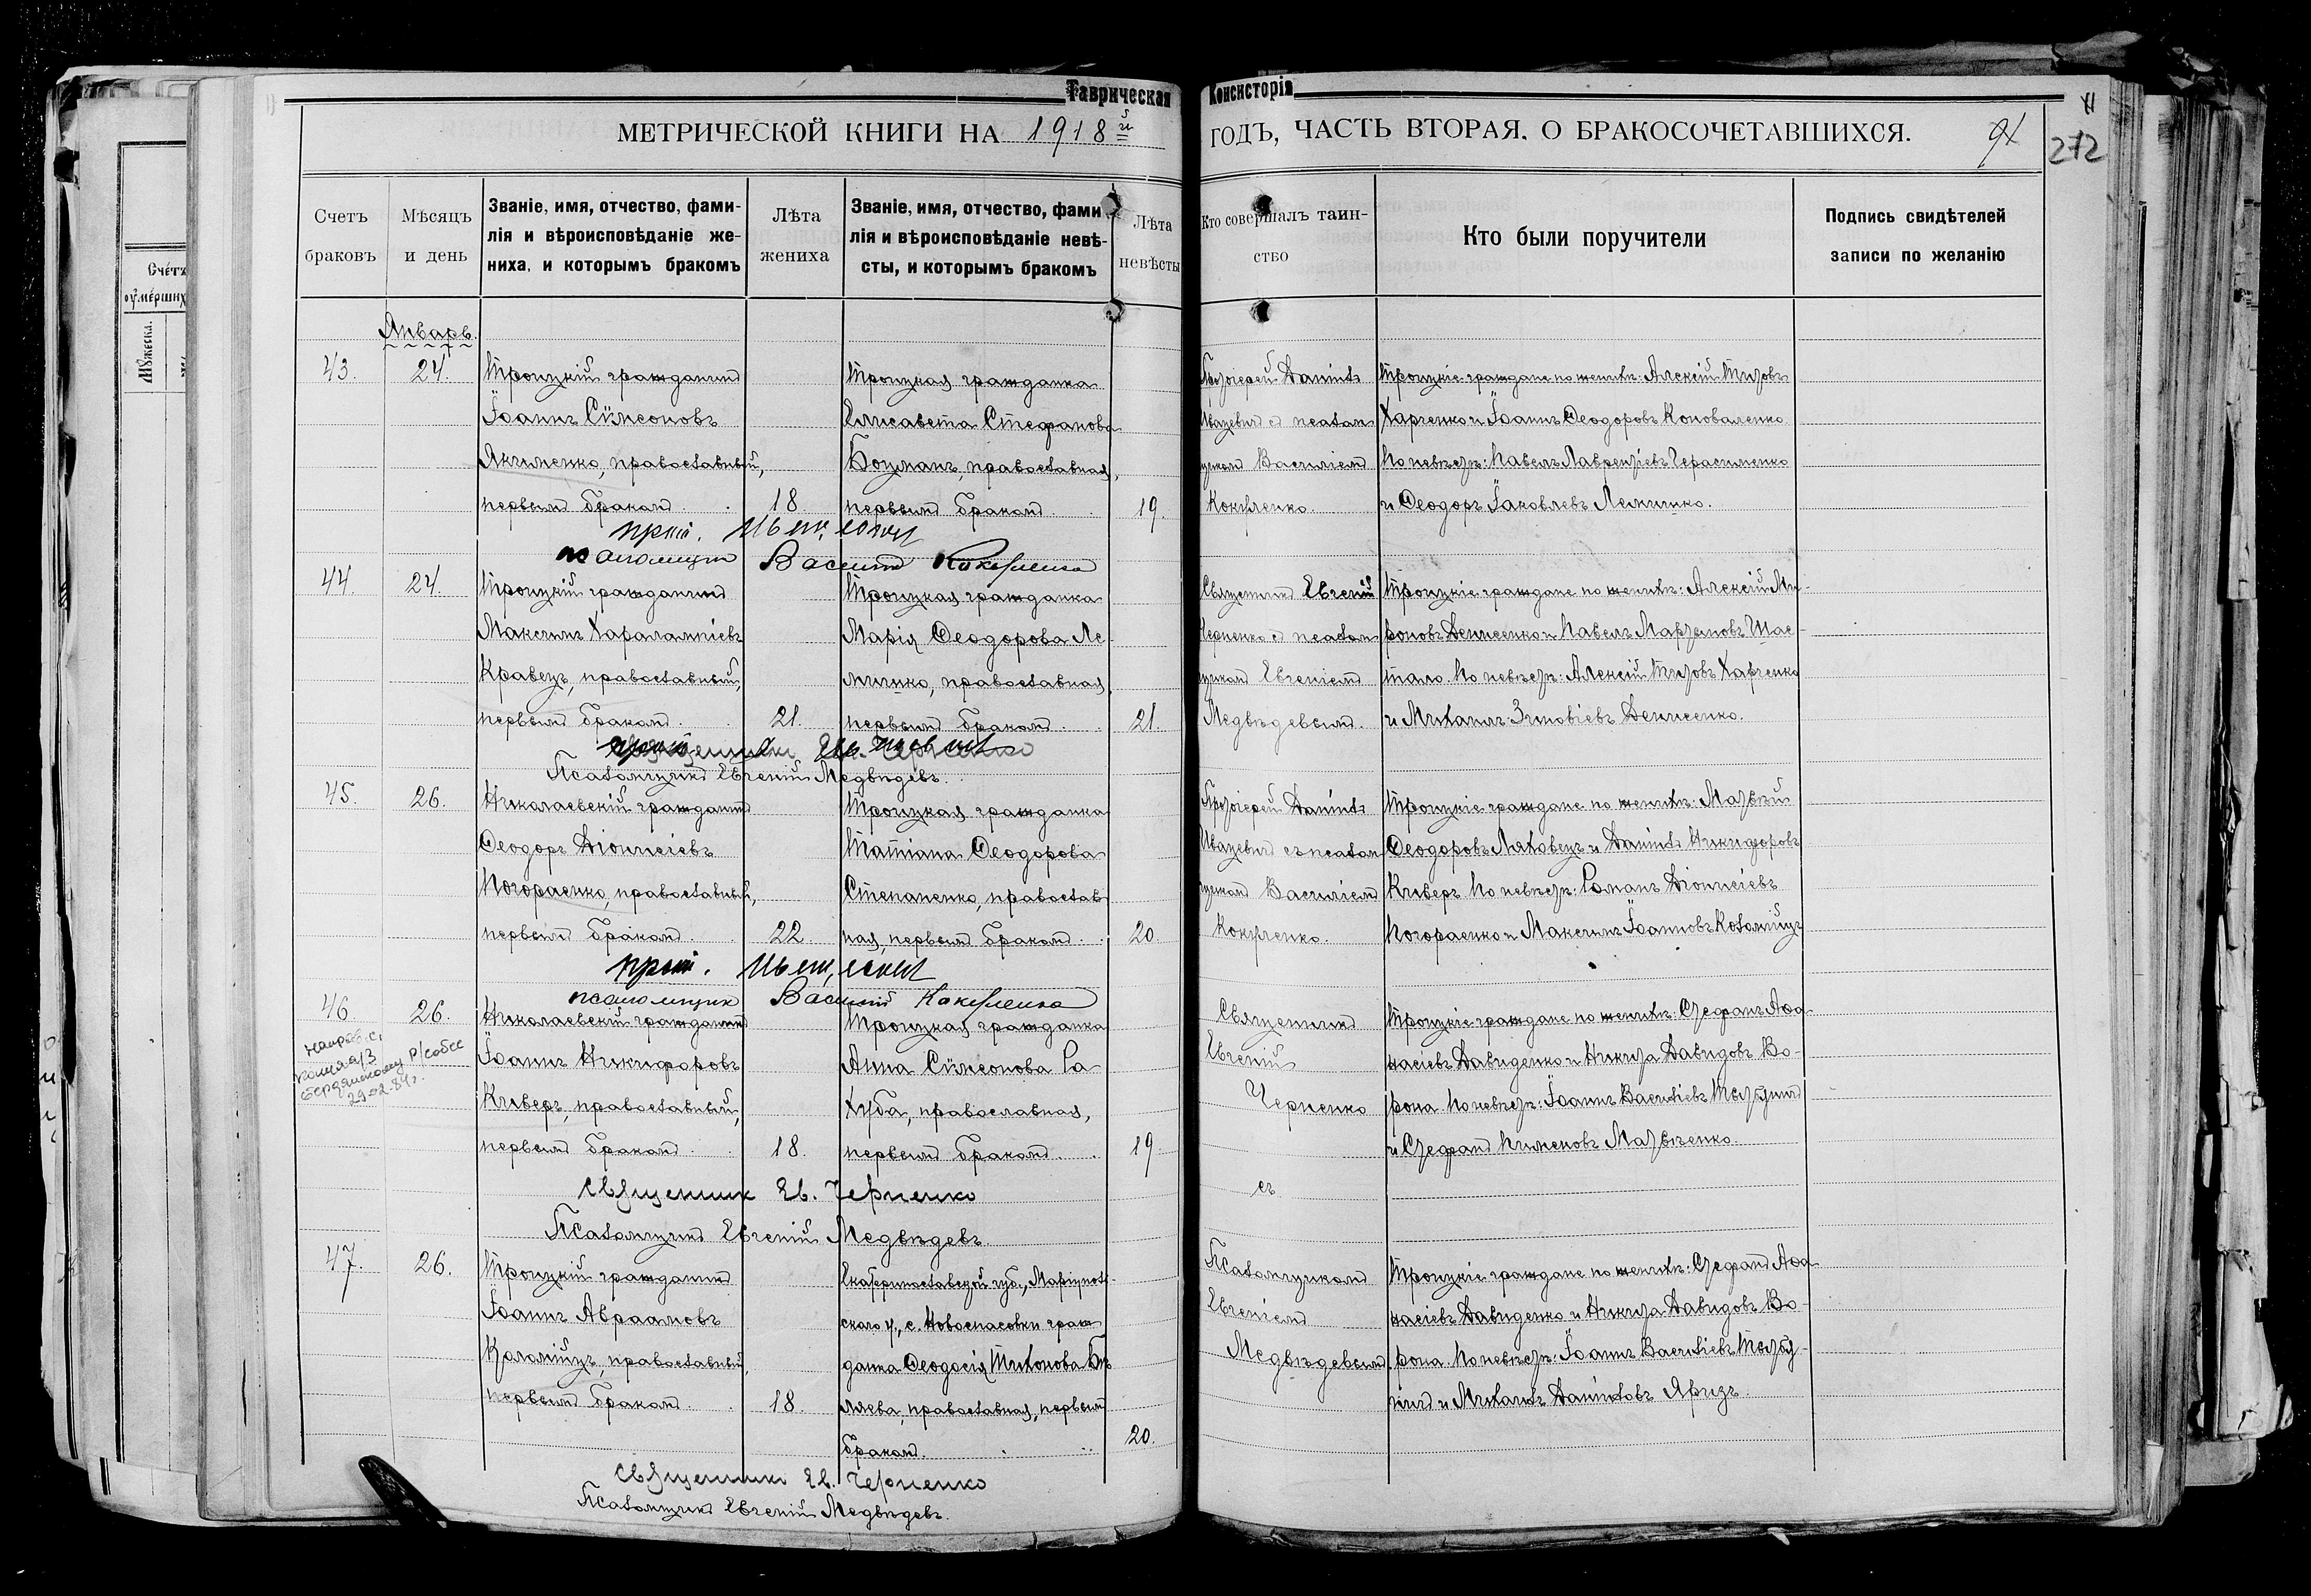 Таврическая Консисторія
МЕТРИЧЕСКОЙ КНИГИ НА 1918й ГОДЪ, ЧАСТЬ ВТОРАЯ. О БРАКОСОЧЕТАВШИХСЯ.
91
272
Счетъ
оумершихъ
Мужеска.
Счетъ
браковъ
Мѣсяцъ
и день
Званіе, имя, отчество, фами-
лія и вѣроисповѣданіе же-
ниха, и которымъ бракомъ
Лѣта
жениха
Званіе, имя, отчество, фами
лія и вѣроисповѣданіе невѣ-
сты, и которымъ бракомъ
Лѣта
невѣсты
Кто совершалъ таин-
ство
Кто были поручители
Подпись свидѣтелей
записи по желанію
Январь.
43.
24.
Троицкій гражданинъ
Іоаннъ Сѵмеоновъ
Якименко, православный,
первымъ бракомъ.
18.
Троицкая гражданка
Елисавета Стефанова
Боцманъ, православная,
первымъ бракомъ.
19.
Протоіерей Даніилъ
Ивацевичъ съ псалом
щикомъ Василіемъ
Кокуленко.
Троицкіе граждане по женихѣ: Алексій Титовъ
Харченко и Іоаннъ Ѳеодоровъ Коноваленко
По невѣстѣ: Павелъ Лаврентіевъ Герасименко
и Ѳеодоръ Іаковлевъ Лемишко.
прот.
псаломщик Василий Кокуленко
44.
24.
Троицкій гражданинъ
Максимъ Харалампіевъ
Кравецъ, православный,
первымъ бракомъ.
21.
Троицкая гражданка
Марія Ѳеодорова Ле-
мишко, православная,
первымъ бракомъ.
21.
Священникъ Евгеній
Черненко съ псалом
щикомъ Евгеніемъ
Медвѣдевымъ.
Троицкіе граждане по женихѣ: Алексій Ми-
роновъ Денисенко и Павелъ Мартиновъ Шас-
тало. По невѣстѣ: Алексій Титовъ Харченко
и Михаилъ Зиновіевъ Денисенко.
Псаломщикъ Евгеній Медвѣдевъ.
45.
26.
Николаевскій гражданинъ
Ѳеодоръ Діонисіевъ
Погорасенко, православный,
первымъ бракомъ.
22
Троицкая гражданка
Татіана Ѳеодорова
Степаненко, православ
ная, первымъ бракомъ.
20
Протоіерей Даніилъ
Ивацевичъ съ псалом
щикомъ Василіемъ
Кокуленко.
Троицкіе граждане по женихѣ: Матвѣй
Ѳеодоровъ Ляховецъ и Даніилъ Никифоровъ
Киверъ По невѣстѣ: Романъ Діонисіевъ
Погораенко и Максимъ Іоанновъ Коломіецъ
прот.
псаломщик Василий Кокуленко
46.
26.
Николаевскій гражданинъ
Іоаннъ Никифоровъ
Киверъ, православный,
первымъ бракомъ.
18.
Троицкая гражданка
Анна Сѵмеонова Ра
хуба, православная,
первымъ бракомъ.
19
Священникъ
Евгеній
Черненко
съ
Троицкіе граждане по женихѣ: Стефанъ Аѳа
насіевъ Давиденко и Никита Давидовъ Во-
рона. По невѣстѣ: Іоаннъ Васильевъ
и Стефанъ Пименовъ Матвѣенко.
29-02-84г.
священник Ев. Черненко
Псаломщикъ Евгеній Медвѣдевъ.
47.
26.
Троицкій гражданинъ
Іоаннъ Авраамовъ
Коломіецъ, православный,
первымъ бракомъ.
18.
Екатеринославской губ., Маріуполь-
скаго у., с. Новоспасовки граж
данка Ѳеодосія Тихонова Бѣ
ляева, православная, первымъ
бракомъ.
20.
Псаломщикомъ
Евгеніемъ
Медвѣдевымъ.
Троицкіе граждане по женихѣ: Стефанъ Аѳа
насіевъ Давиденко и Никита Давидовъ Во-
рона. По невѣстѣ: Іоаннъ Васильевъ
и Михаилъ Данииловъ
священник Ев. Черненко
Псаломщикъ Евгеній Медвѣдевъ.